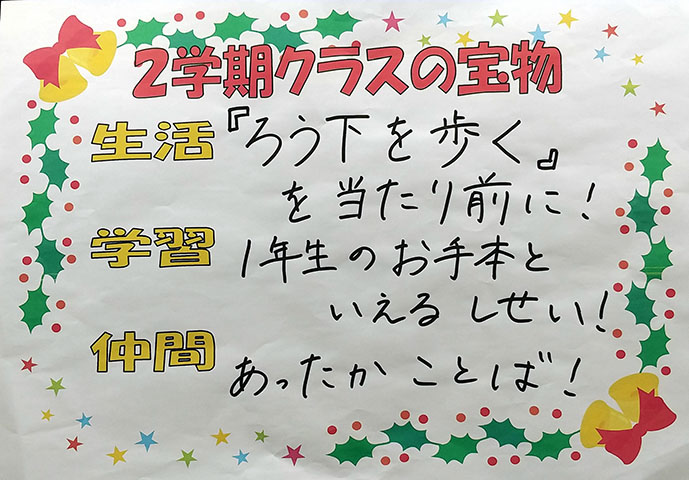 2学期クラスの宝物
生活『ろう下を歩く』
を当たり前に!
学習 1年生のお手本と
いえるしせい!
仲間 あったかことば!